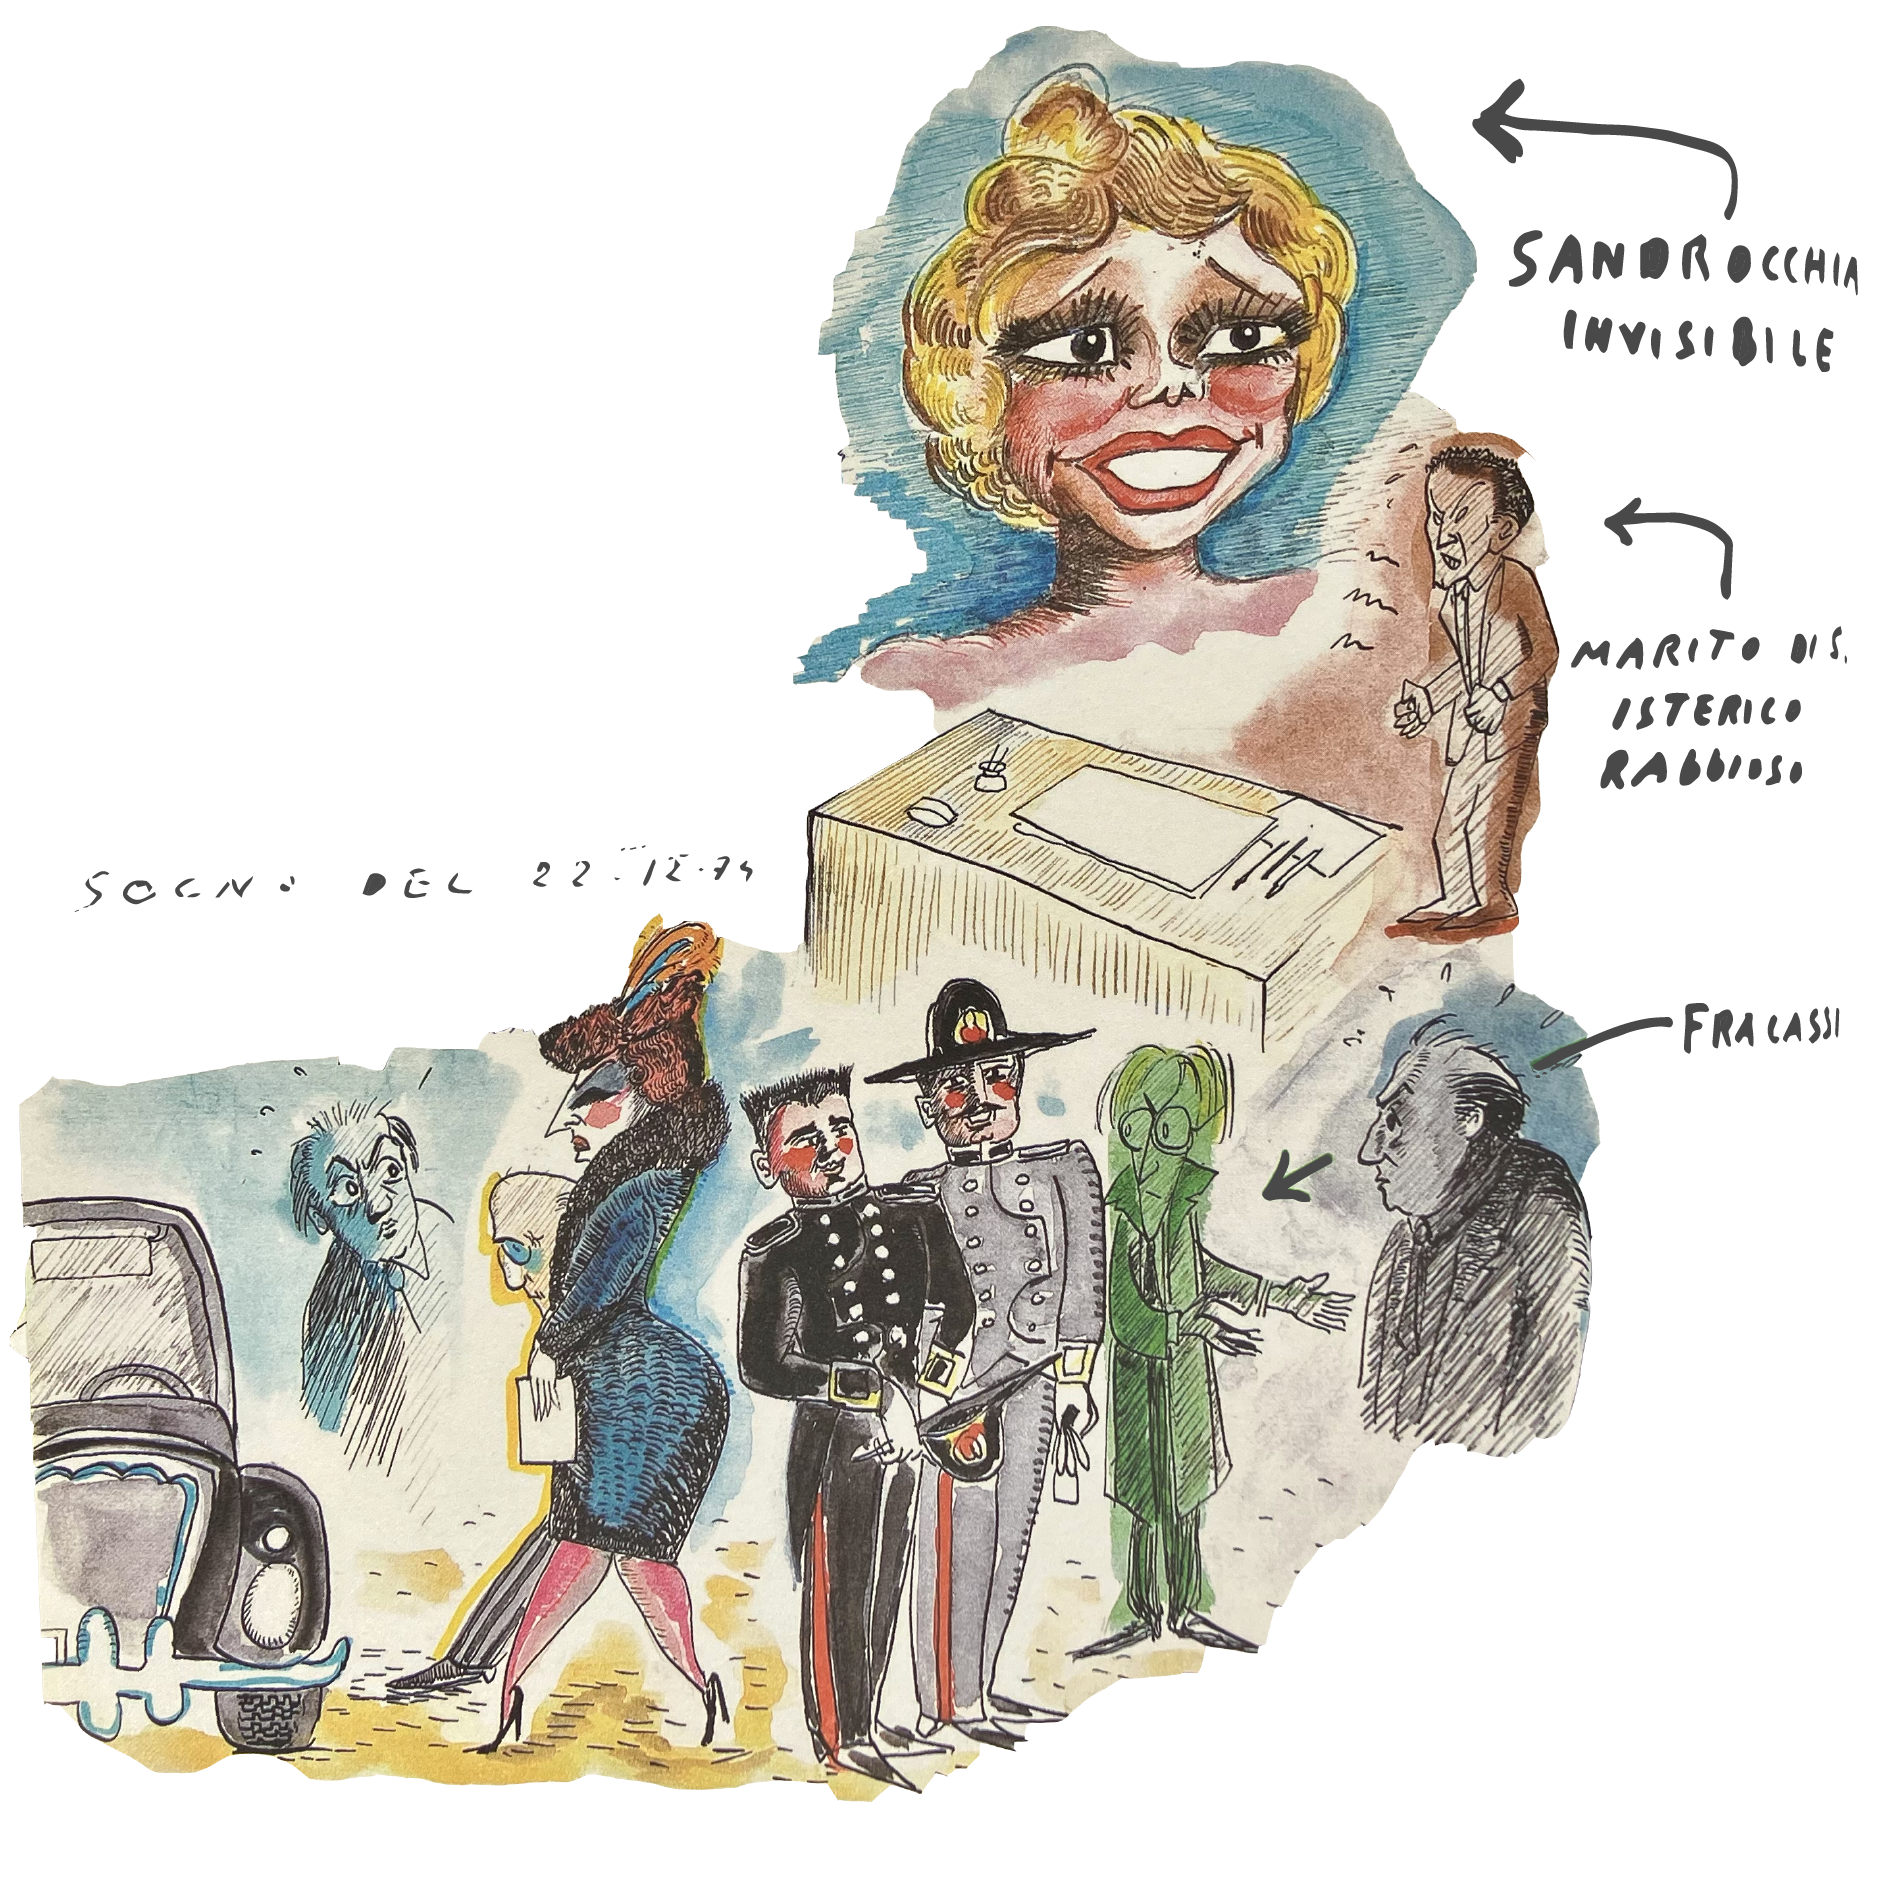 SANDROCCHIA
INVISIBILE
MARITO DI S.
ISTERICO
RABBIOSO
SOGNO DEL 22-12-74
FRACASSI